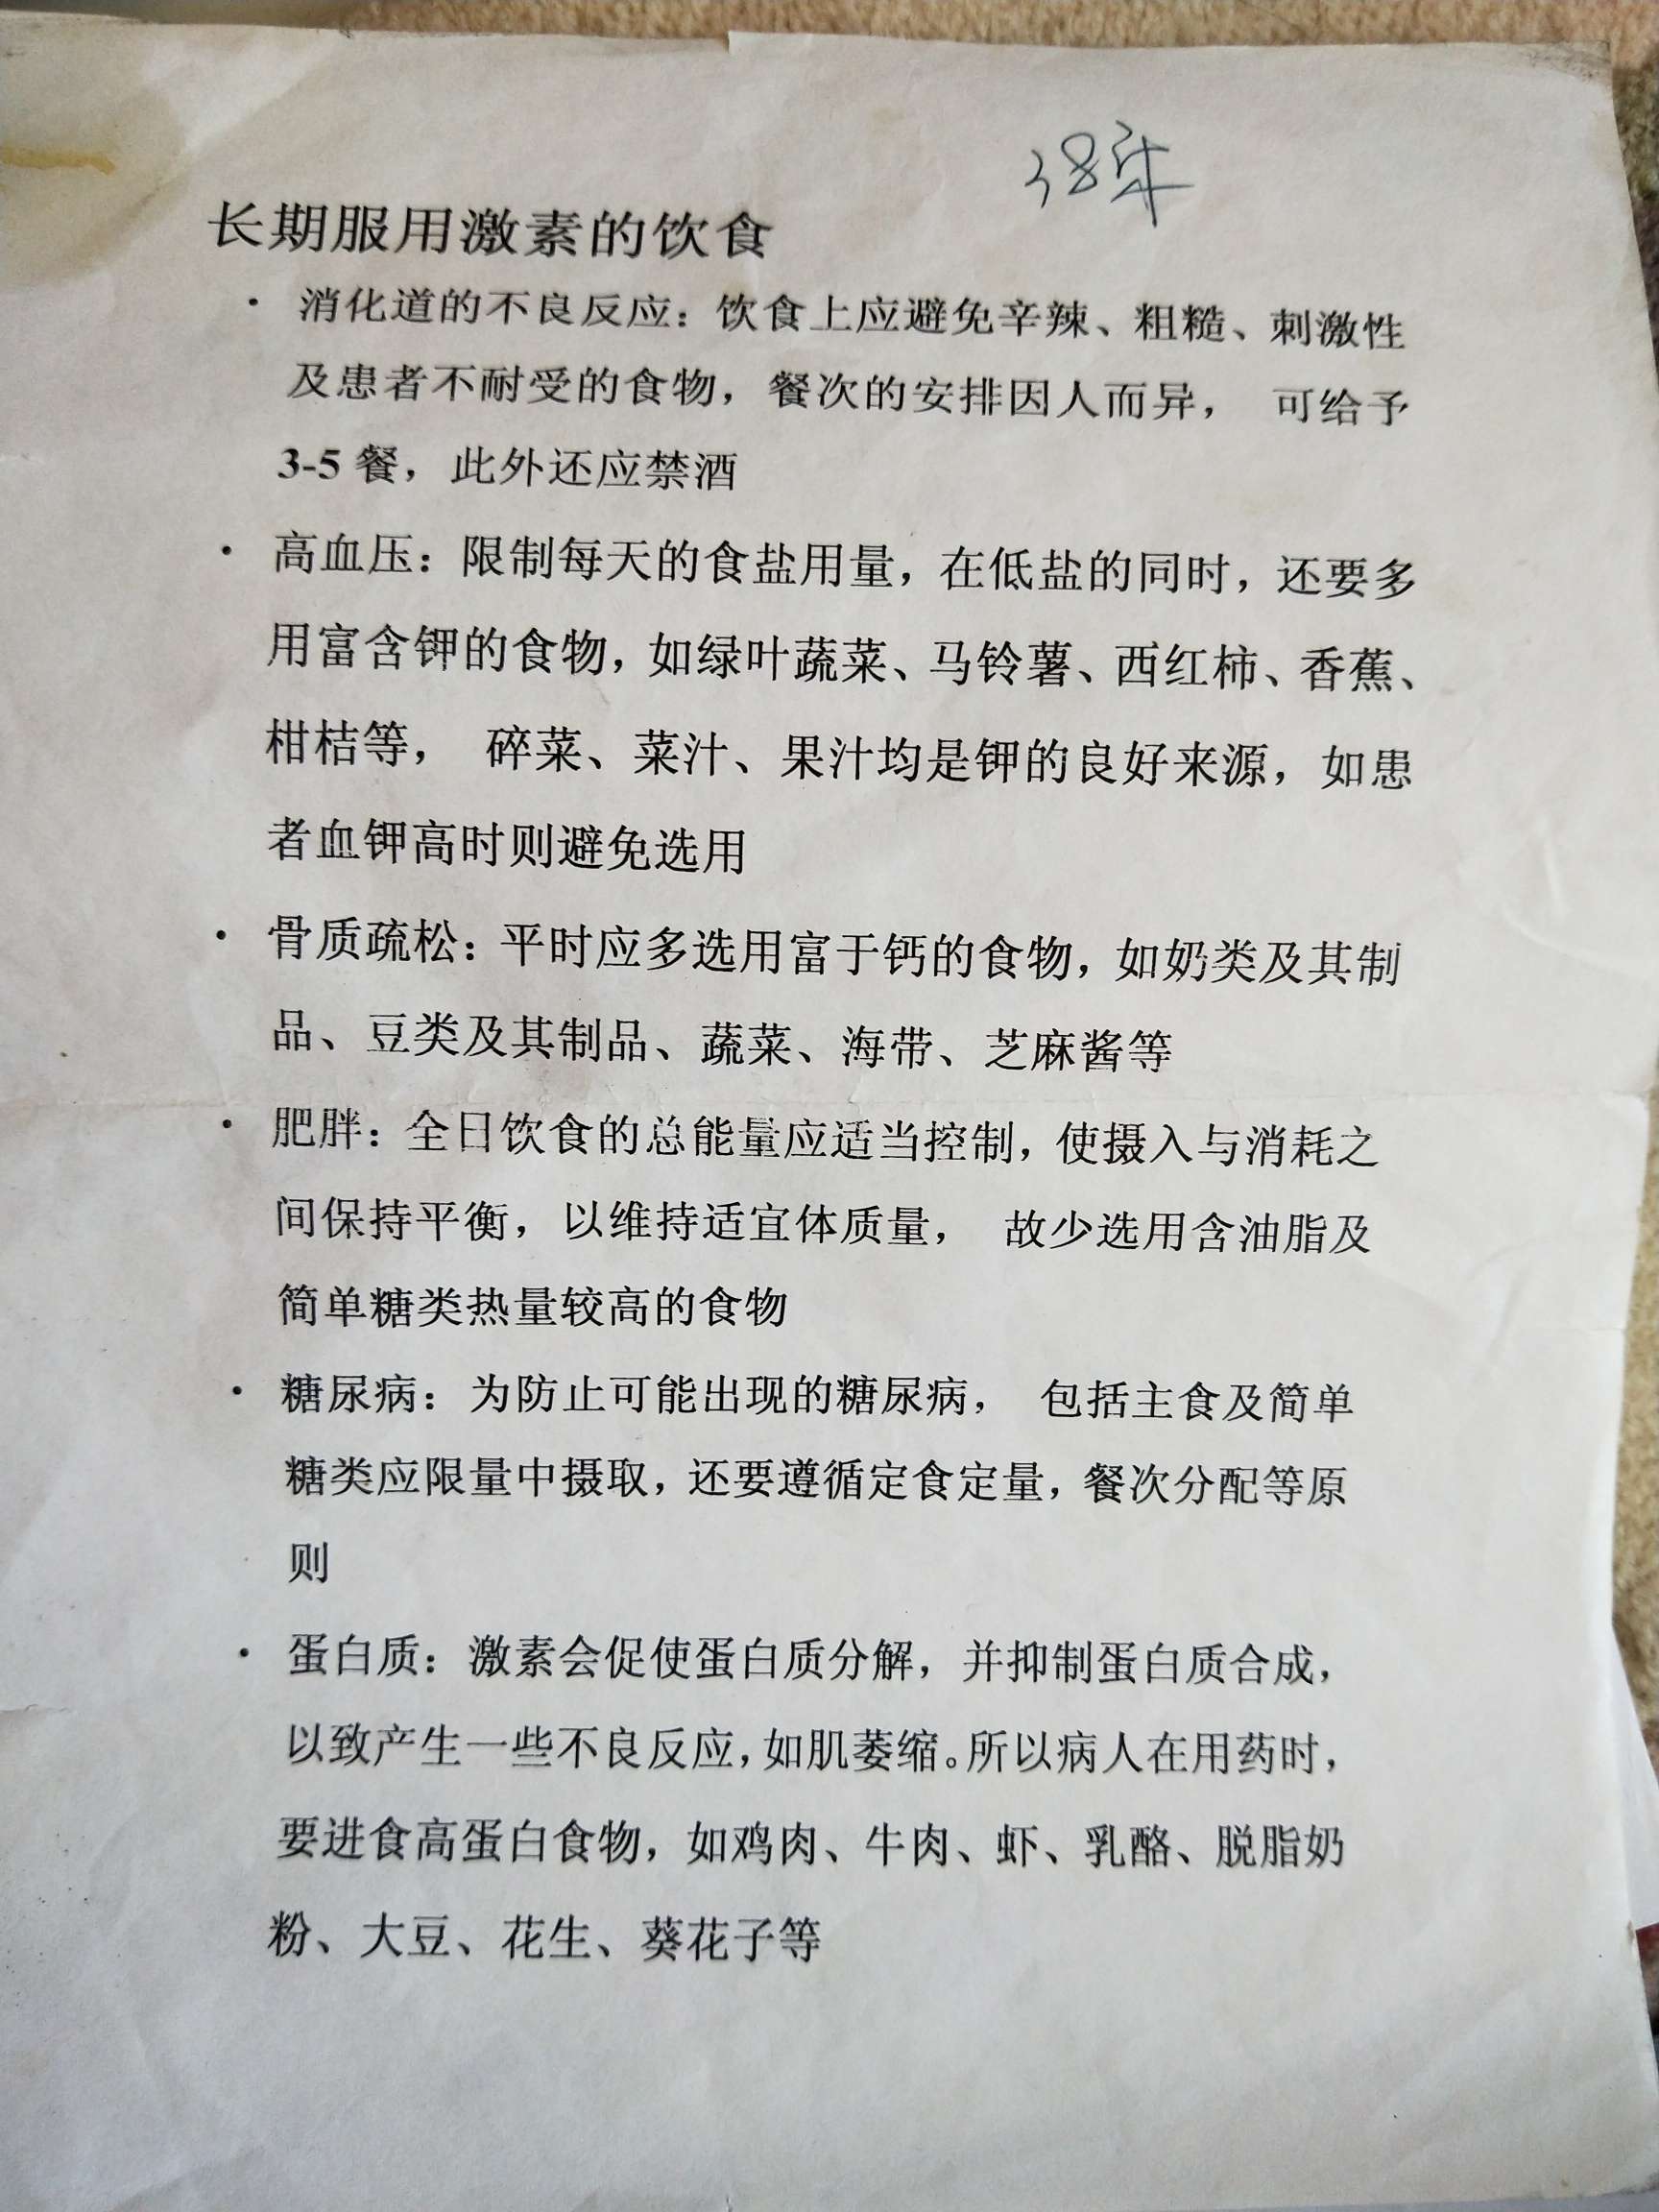 长期服用激素的饮食
· 消化道的不良反应：饮食上应避免辛辣、粗糙、刺激性
及患者不耐受的食物，餐次的安排因人而异， 可给予
3-5 餐，此外还应禁酒
· 高血压：限制每天的食盐用量，在低盐的同时，还要多
用富含钾的食物，如绿叶蔬菜、马铃薯、西红柿、香蕉、
柑桔等， 碎菜、菜汁、果汁均是钾的良好来源，如患
者血钾高时则避免选用
· 骨质疏松：平时应多选用富于钙的食物，如奶类及其制
品、豆类及其制品、蔬菜、海带、芝麻酱等
· 肥胖：全日饮食的总能量应适当控制，使摄入与消耗之
间保持平衡，以维持适宜体质量， 故少选用含油脂及
简单糖类热量较高的食物
· 糖尿病：为防止可能出现的糖尿病， 包括主食及简单
糖类应限量中摄取，还要遵循定食定量，餐次分配等原
则
· 蛋白质：激素会促使蛋白质分解，并抑制蛋白质合成，
以致产生一些不良反应，如肌萎缩。所以病人在用药时，
要进食高蛋白食物，如鸡肉、牛肉、虾、乳酪、脱脂奶
粉、大豆、花生、葵花子等